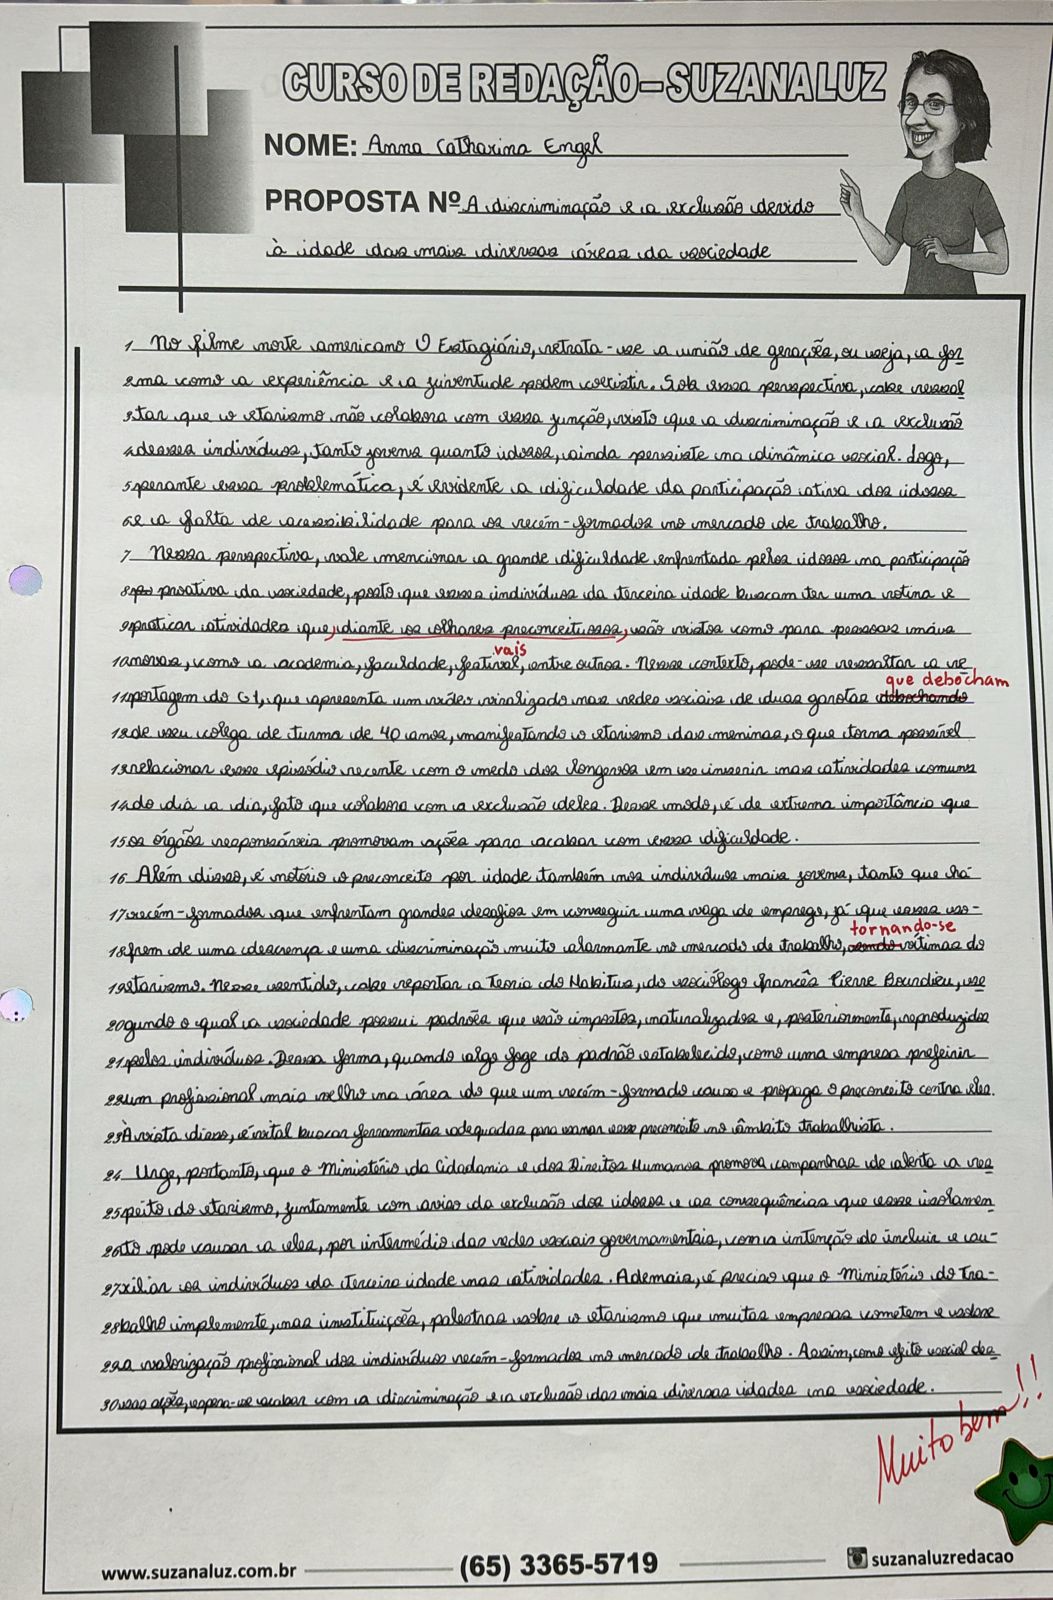 CURSO DE REDAÇÃO-SUZANA LUZ
NOME: Anna Catharina Engel
PROPOSTA Nº A discriminação e a exclusão devido
à idade das mais diversas áreas da sociedade
1 No filme norte americano O Estagiário, retrata-se a união de gerações, ou seja, a for
2 ma como a experiência e a juventude podem coexistir. Sob essa perspectiva, cabe ressal
3 tar que o etarismo não colabora com essa junção, visto que a discriminação e a exclusão
4 desses indivíduos, tanto jovens quanto idosos, ainda persiste na dinâmica social. Logo,
5 perante essa problemática, é evidente a dificuldade da participação ativa dos idosos
6 e a falta de acessibilidade para os recém-formados no mercado de trabalho.
7 Nessa perspectiva, vale mencionar a grande dificuldade enfrentada pelos idosos na participação
8 proativa da sociedade, posto que esses indivíduos da terceira idade buscam ter uma rotina e
9 praticar atividades que, diante os olhares preconceituosos, são vistos como para pessoas mais
vais
10 novas, como a academia, faculdade, festival, entre outros. Nesse contexto, pode-se ressaltar a re
que debocham
11 portagem do G1, que apresenta um vídeo viralizado nas redes sociais de duas garotas debochando
12 de seu colega de turma de 40 anos, manifestando o etarismo das meninas, o que torna possível
13 relacionar esse episódio recente com o medo dos longevos em se inserir nas atividades comuns
14 do dia a dia, fato que colabora com a exclusão deles. Desse modo, é de extrema importância que
15 os órgãos responsáveis promovam ações para acabar com essa dificuldade.
16 Além disso, é notório o preconceito por idade também nos indivíduos mais jovens, tanto que há
17 recém-formados que enfrentam grandes desafios em conseguir uma vaga de emprego, já que esses so-
tornando-se
18 frem de uma descrença e uma discriminação muito alarmante no mercado de trabalho, sendo vítimas do
19 etarismo. Nesse sentido, cabe reportar a Teoria do Habitus, do sociólogo francês Pierre Bourdieu, se
20 gundo o qual a sociedade possui padrões que são impostos, naturalizados e, posteriormente, reproduzidos
21 pelos indivíduos. Dessa forma, quando algo foge do padrão estabelecido, como uma empresa preferir
22 um profissional mais velho na área do que um recém-formado causa e propaga o preconceito contra eles.
23 À vista disso, é vital buscar ferramentas adequadas para sanar esse preconceito no âmbito trabalhista.
24 Urge, portanto, que o Ministério da Cidadania e dos Direitos Humanos promova campanhas de alerta a res
25 peito do etarismo, juntamente com aviso da exclusão dos idosos e as consequências que esse isolamen
26 to pode causar a eles, por intermédio das redes sociais governamentais, com a intenção de incluir e au-
27 xiliar os indivíduos da terceira idade nas atividades. Ademais, é preciso que o Ministério do Tra-
28 balho implemente, nas instituições, palestras sobre o etarismo que muitas empresas cometem e sobre
29 a valorização profissional dos indivíduos recém-formados no mercado de trabalho. Assim, como efeito social des
30 sas ações, espera-se acabar com a discriminação e a exclusão das mais diversas idades na sociedade.
Muito bem!!
www.suzanaluz.com.br (65) 3365-5719 suzanaluzredacao